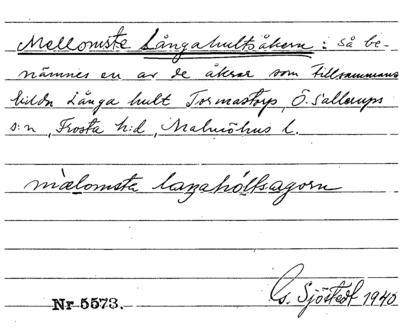 Mellomsta Långahultsåkern: så be-
nämnes en av de åkrar som tillsammans
bilda Långa hult Tormastorp, Ö. Sallerups
s:n, Frosta h:d, Malmöhus l.
mælomsta laŋahóltsagorn
Nr 5573.
Cs. Sjöstedt 1940